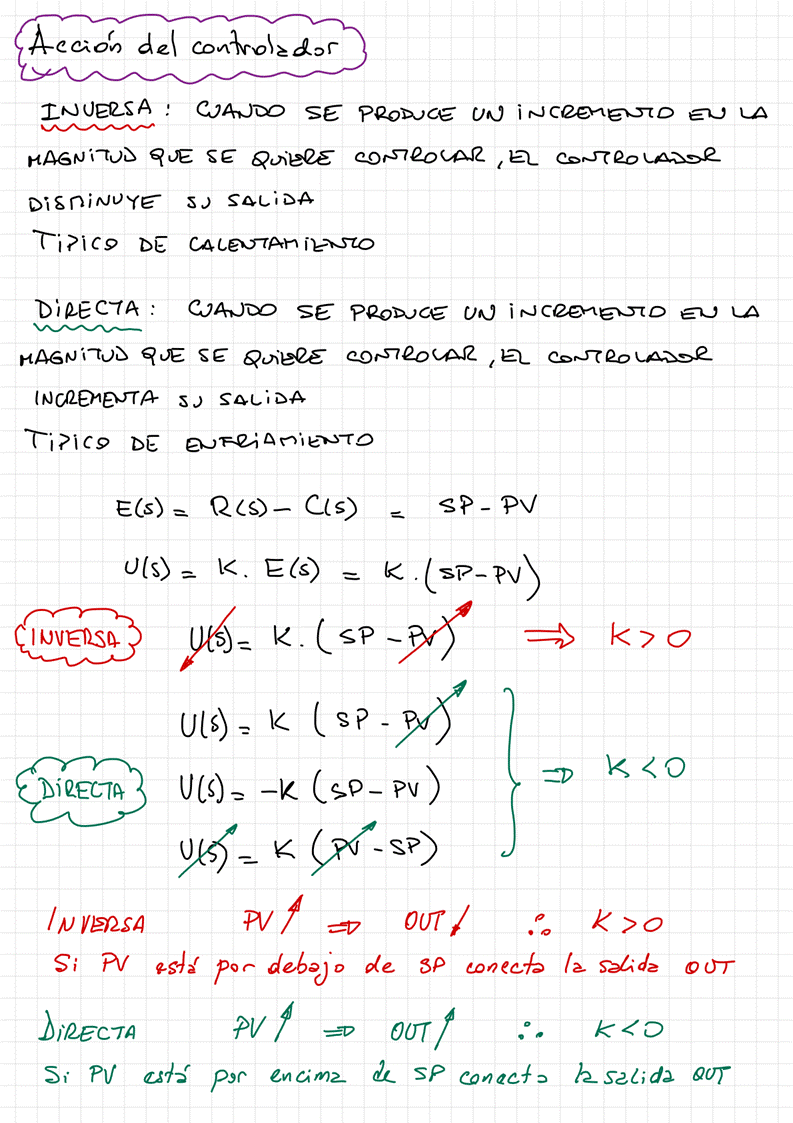 Acción del controlador
INVERSA: CUANDO SE PRODUCE UN INCREMENTO EN LA
MAGNITUD QUE SE QUIERE CONTROLAR, EL CONTROLADOR
DISMINUYE SU SALIDA
TIPICO DE CALENTAMIENTO
DIRECTA: CUANDO SE PRODUCE UN INCREMENTO EN LA
MAGNITUD QUE SE QUIERE CONTROLAR, EL CONTROLADOR
INCREMENTA SU SALIDA
TIPICO DE ENFRIAMIENTO
E(s) = R(s) - C(s) = SP - PV
U(s) = K. E(s) = K.(SP-PV)
INVERSA U(s) = K.(SP - PV) ⇒ K > 0
U(s) = K (SP - PV)
DIRECTA U(s) = -K (SP - PV) ⇒ K < 0
U(s) = K (PV - SP)
INVERSA PV ↑ ⇒ OUT ↓ ∴ K > 0
Si PV está por debajo de SP conecta la salida OUT
DIRECTA PV ↑ ⇒ OUT ↑ ∴ K < 0
Si PV está por encima de SP conecta la salida OUT